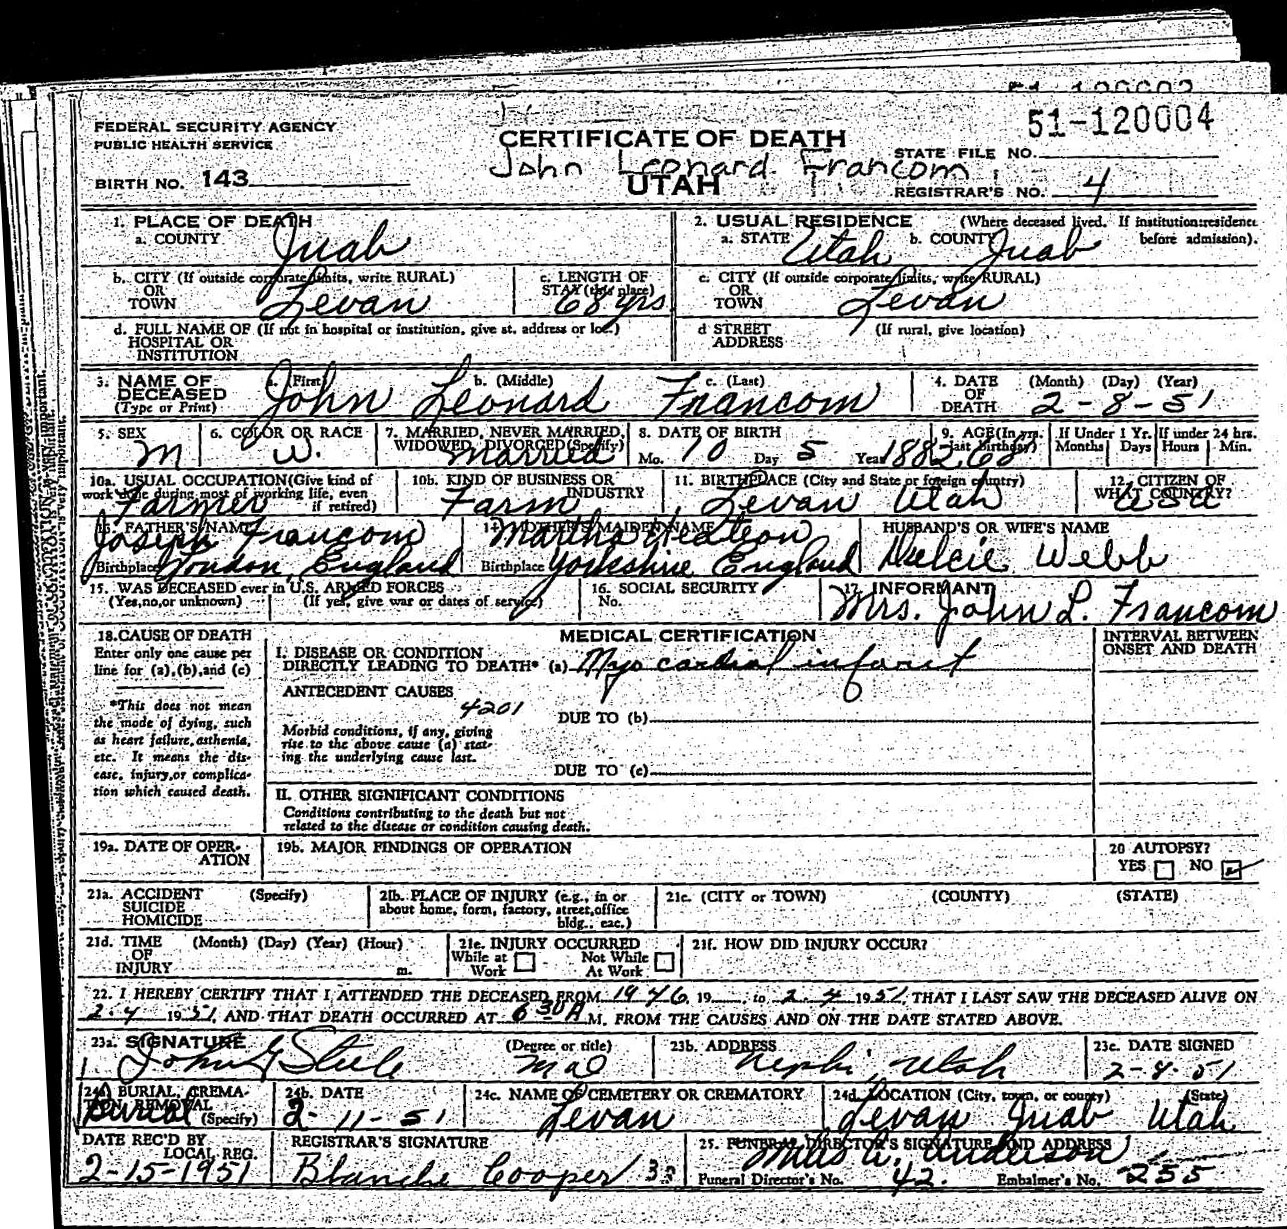 51-120004
FEDERAL SECURITY AGENCY
PUBLIC HEALTH SERVICE
CERTIFICATE OF DEATH
John Leonard Francom
UTAH
STATE FILE NO.
BIRTH NO. 143
REGISTRAR'S NO. 4
1. PLACE OF DEATH
a. COUNTY Juab
2. USUAL RESIDENCE (Where deceased lived. If institution: residence before admission).
a. STATE Utah b. COUNTY Juab
b. CITY (If outside corporate limits, write RURAL)
OR
TOWN Levan
c. LENGTH OF
STAY (this place)
68 yrs
c. CITY (If outside corporate limits, write RURAL)
OR
TOWN Levan
d. FULL NAME OF (If not in hospital or institution, give st. address or loc.)
HOSPITAL OR
INSTITUTION
d STREET (If rural, give location)
ADDRESS
3. NAME OF
DECEASED
(Type or Print)
a. (First) b. (Middle) c. (Last)
John Leonard Francom
4. DATE (Month) (Day) (Year)
OF
DEATH 2-8-51
5. SEX
M
6. COLOR OR RACE
W.
7. MARRIED, NEVER MARRIED,
WIDOWED, DIVORCED (Specify)
Married
8. DATE OF BIRTH
Mo. 10 Day 5 Year 1882
9. AGE (In yrs.
last birthday)
68
If Under 1 Yr.
Months Days
If under 24 hrs.
Hours Min.
10a. USUAL OCCUPATION (Give kind of
work done during most of working life, even
if retired)
Farmer
10b. KIND OF BUSINESS OR
INDUSTRY
Farm
11. BIRTHPLACE (City and State or foreign country)
Levan Utah
12. CITIZEN OF
WHAT COUNTRY?
USA
FATHER'S NAME
Joseph Francom
Birthplace London, England
14. MOTHER'S MAIDEN NAME
Martha
Birthplace Yorkshire England
HUSBAND'S OR WIFE'S NAME
Delcie Webb
15. WAS DECEASED ever in U.S. ARMED FORCES
(Yes, no, or unknown) (If yes, give war or dates of service)
16. SOCIAL SECURITY
No.
17. INFORMANT
Mrs. John L. Francom
18. CAUSE OF DEATH
Enter only one cause per
line for (a), (b), and (c)
*This does not mean
the mode of dying, such
as heart failure, asthenia,
etc. It means the dis-
ease, injury, or complica-
tion which caused death.
MEDICAL CERTIFICATION
I. DISEASE OR CONDITION
DIRECTLY LEADING TO DEATH* (a) Myocardial infarct
ANTECEDENT CAUSES
4201
DUE TO (b)
Morbid conditions, if any, giving
rise to the above cause (a) stat-
ing the underlying cause last.
DUE TO (c)
II. OTHER SIGNIFICANT CONDITIONS
Conditions contributing to the death but not
related to the disease or condition causing death.
INTERVAL BETWEEN
ONSET AND DEATH
19a. DATE OF OPER-
ATION
19b. MAJOR FINDINGS OF OPERATION
20 AUTOPSY?
YES NO
21a. ACCIDENT (Specify)
SUICIDE
HOMICIDE
21b. PLACE OF INJURY (e.g., in or
about home, form, factory, street, office
bldg., eac.)
21c. (CITY or TOWN) (COUNTY) (STATE)
21d. TIME (Month) (Day) (Year) (Hour)
OF
INJURY m.
21e. INJURY OCCURRED
While at Work Not While At Work
21f. HOW DID INJURY OCCUR?
22. I HEREBY CERTIFY THAT I ATTENDED THE DECEASED FROM 1946, 19 to 2-4 1951, THAT I LAST SAW THE DECEASED ALIVE ON
2-4 1951, AND THAT DEATH OCCURRED AT 6 30 A M. FROM THE CAUSES AND ON THE DATE STATED ABOVE.
23a. SIGNATURE (Degree or title)
John G Steele
23b. ADDRESS
Nephi, Utah
23c. DATE SIGNED
24a BURIAL, CREMA-
TION REMOVAL
(Specify)
Burial
24b. DATE
2-11-51
24c. NAME OF CEMETERY OR CREMATORY
Levan
24d. LOCATION (City, town, or county) (State)
Levan Juab Utah
DATE REC'D BY
LOCAL REG.
2-15-1951
REGISTRAR'S SIGNATURE
Blanche Cooper
25. FUNERAL DIRECTOR'S SIGNATURE AND ADDRESS
Anderson
Funeral Director's No. 42. Embalmer's No. 255